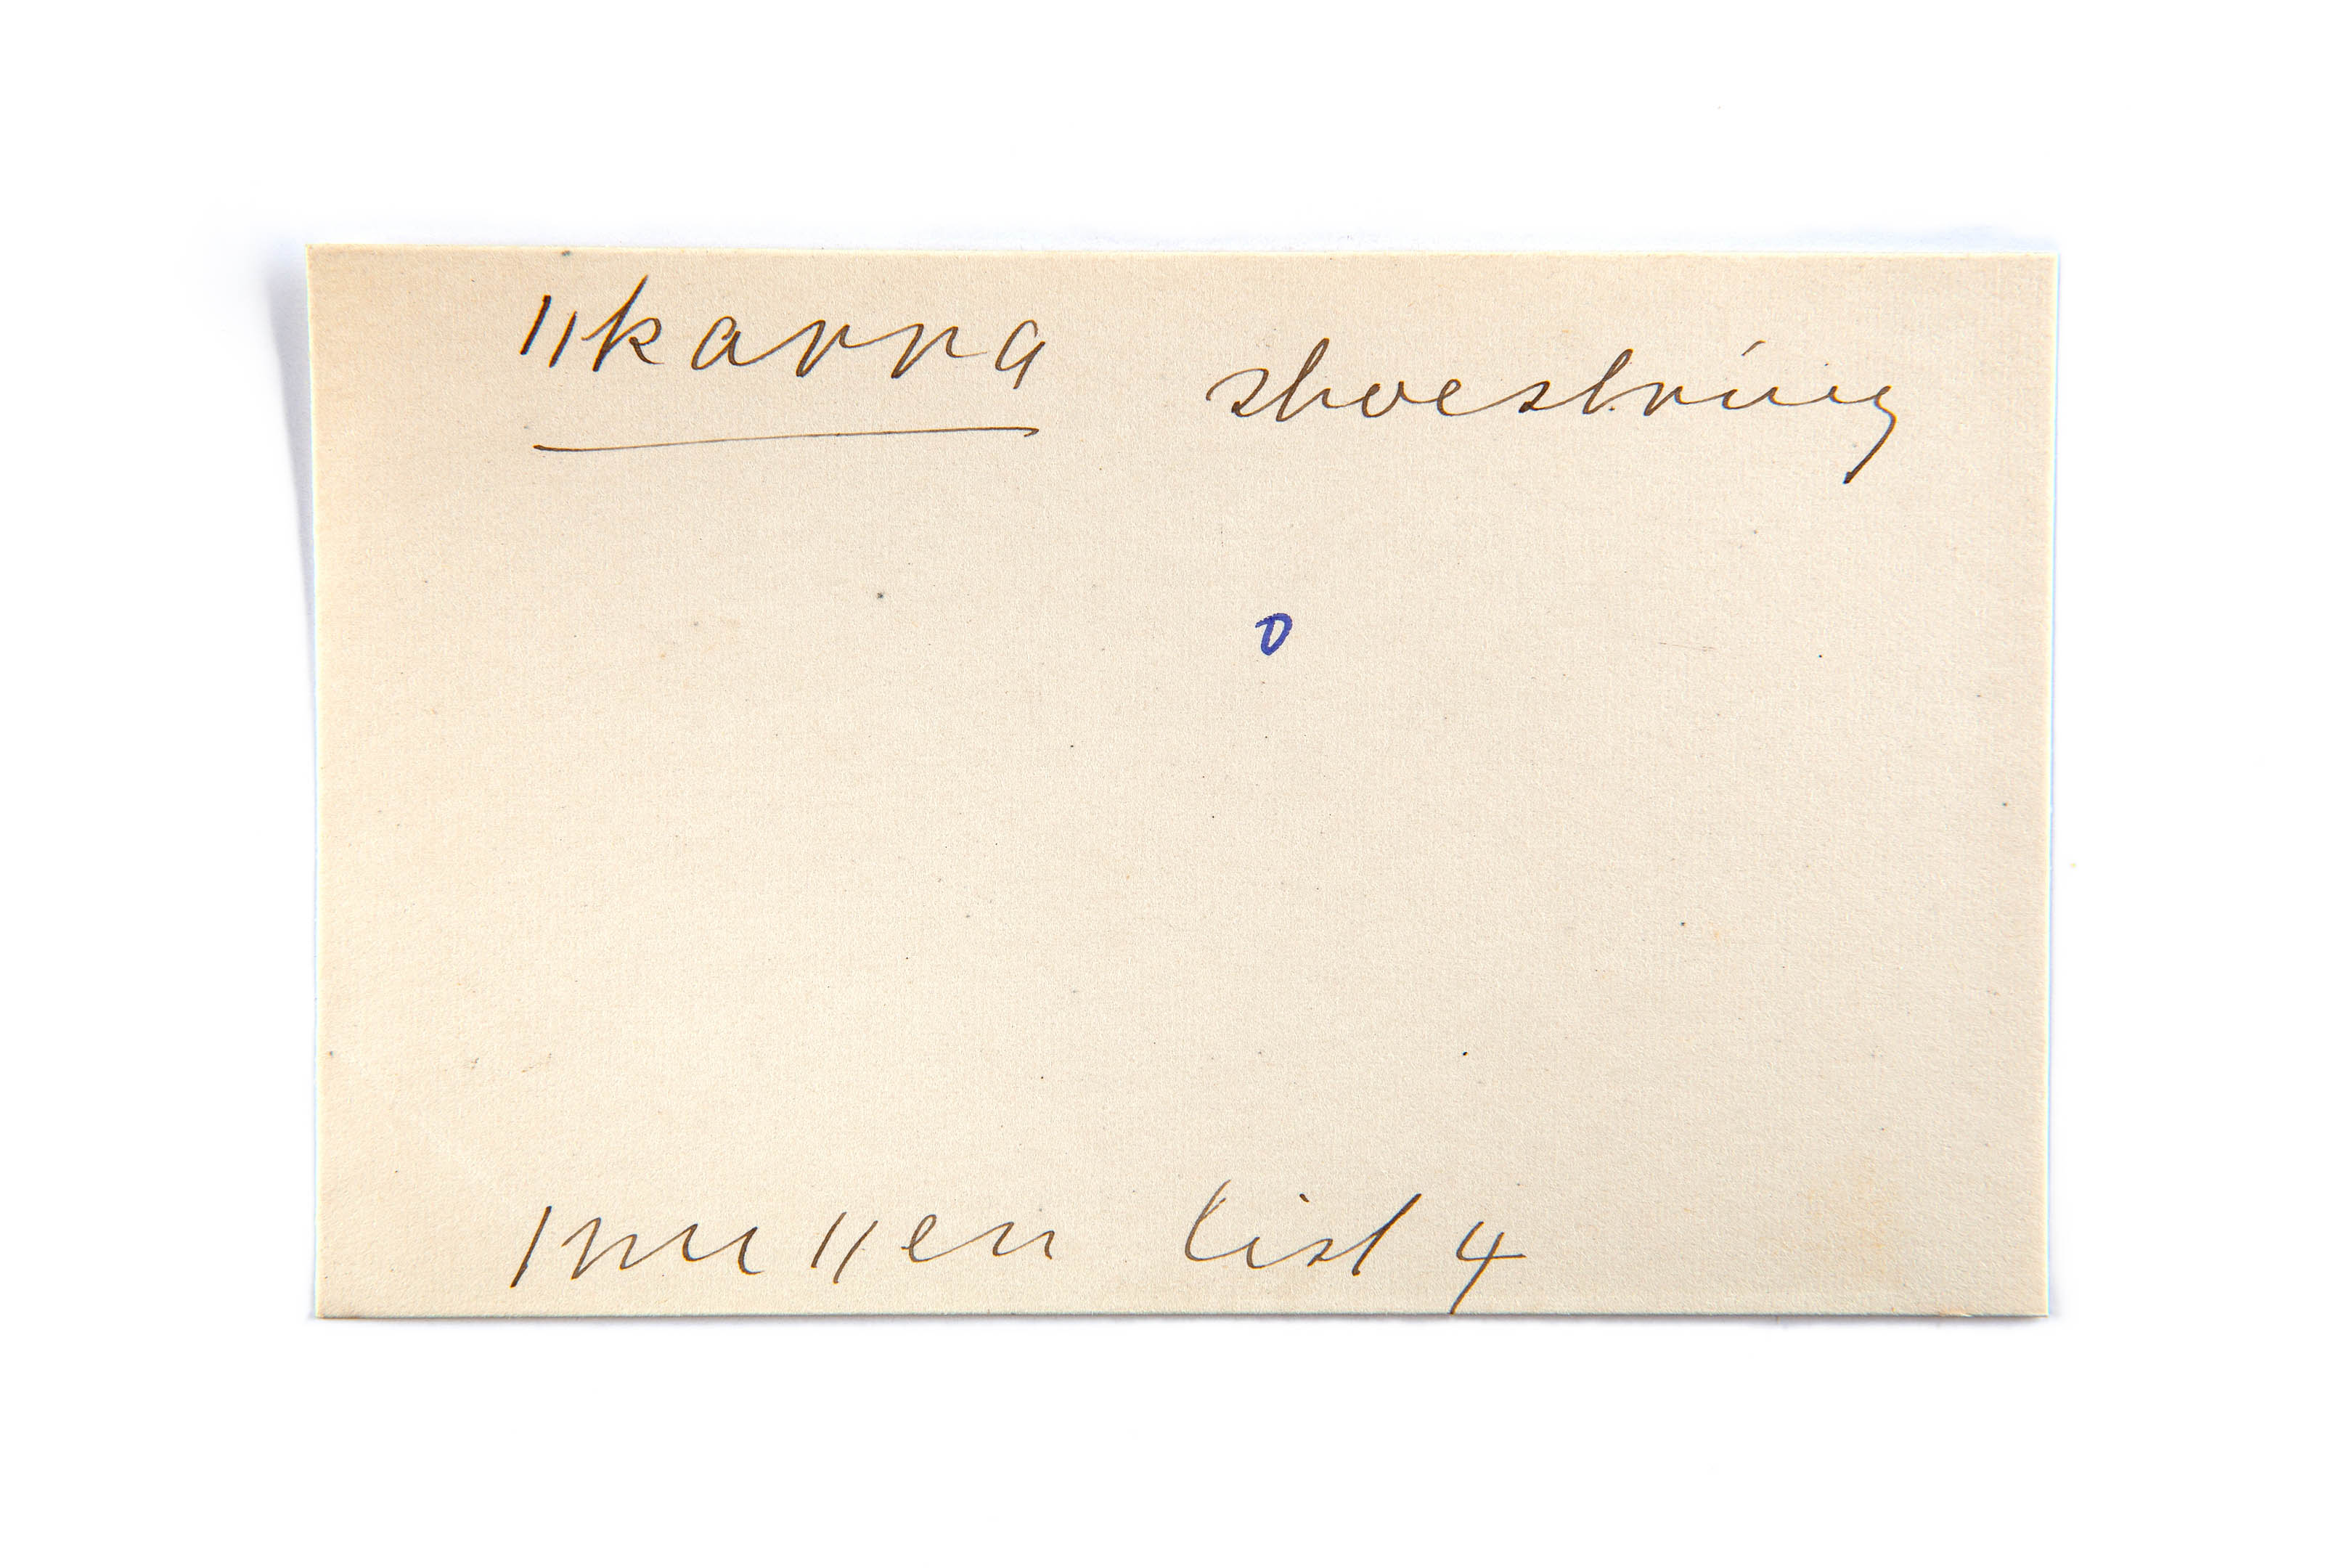 ǁkarra shoestring
o
ǀnuǁen list 4